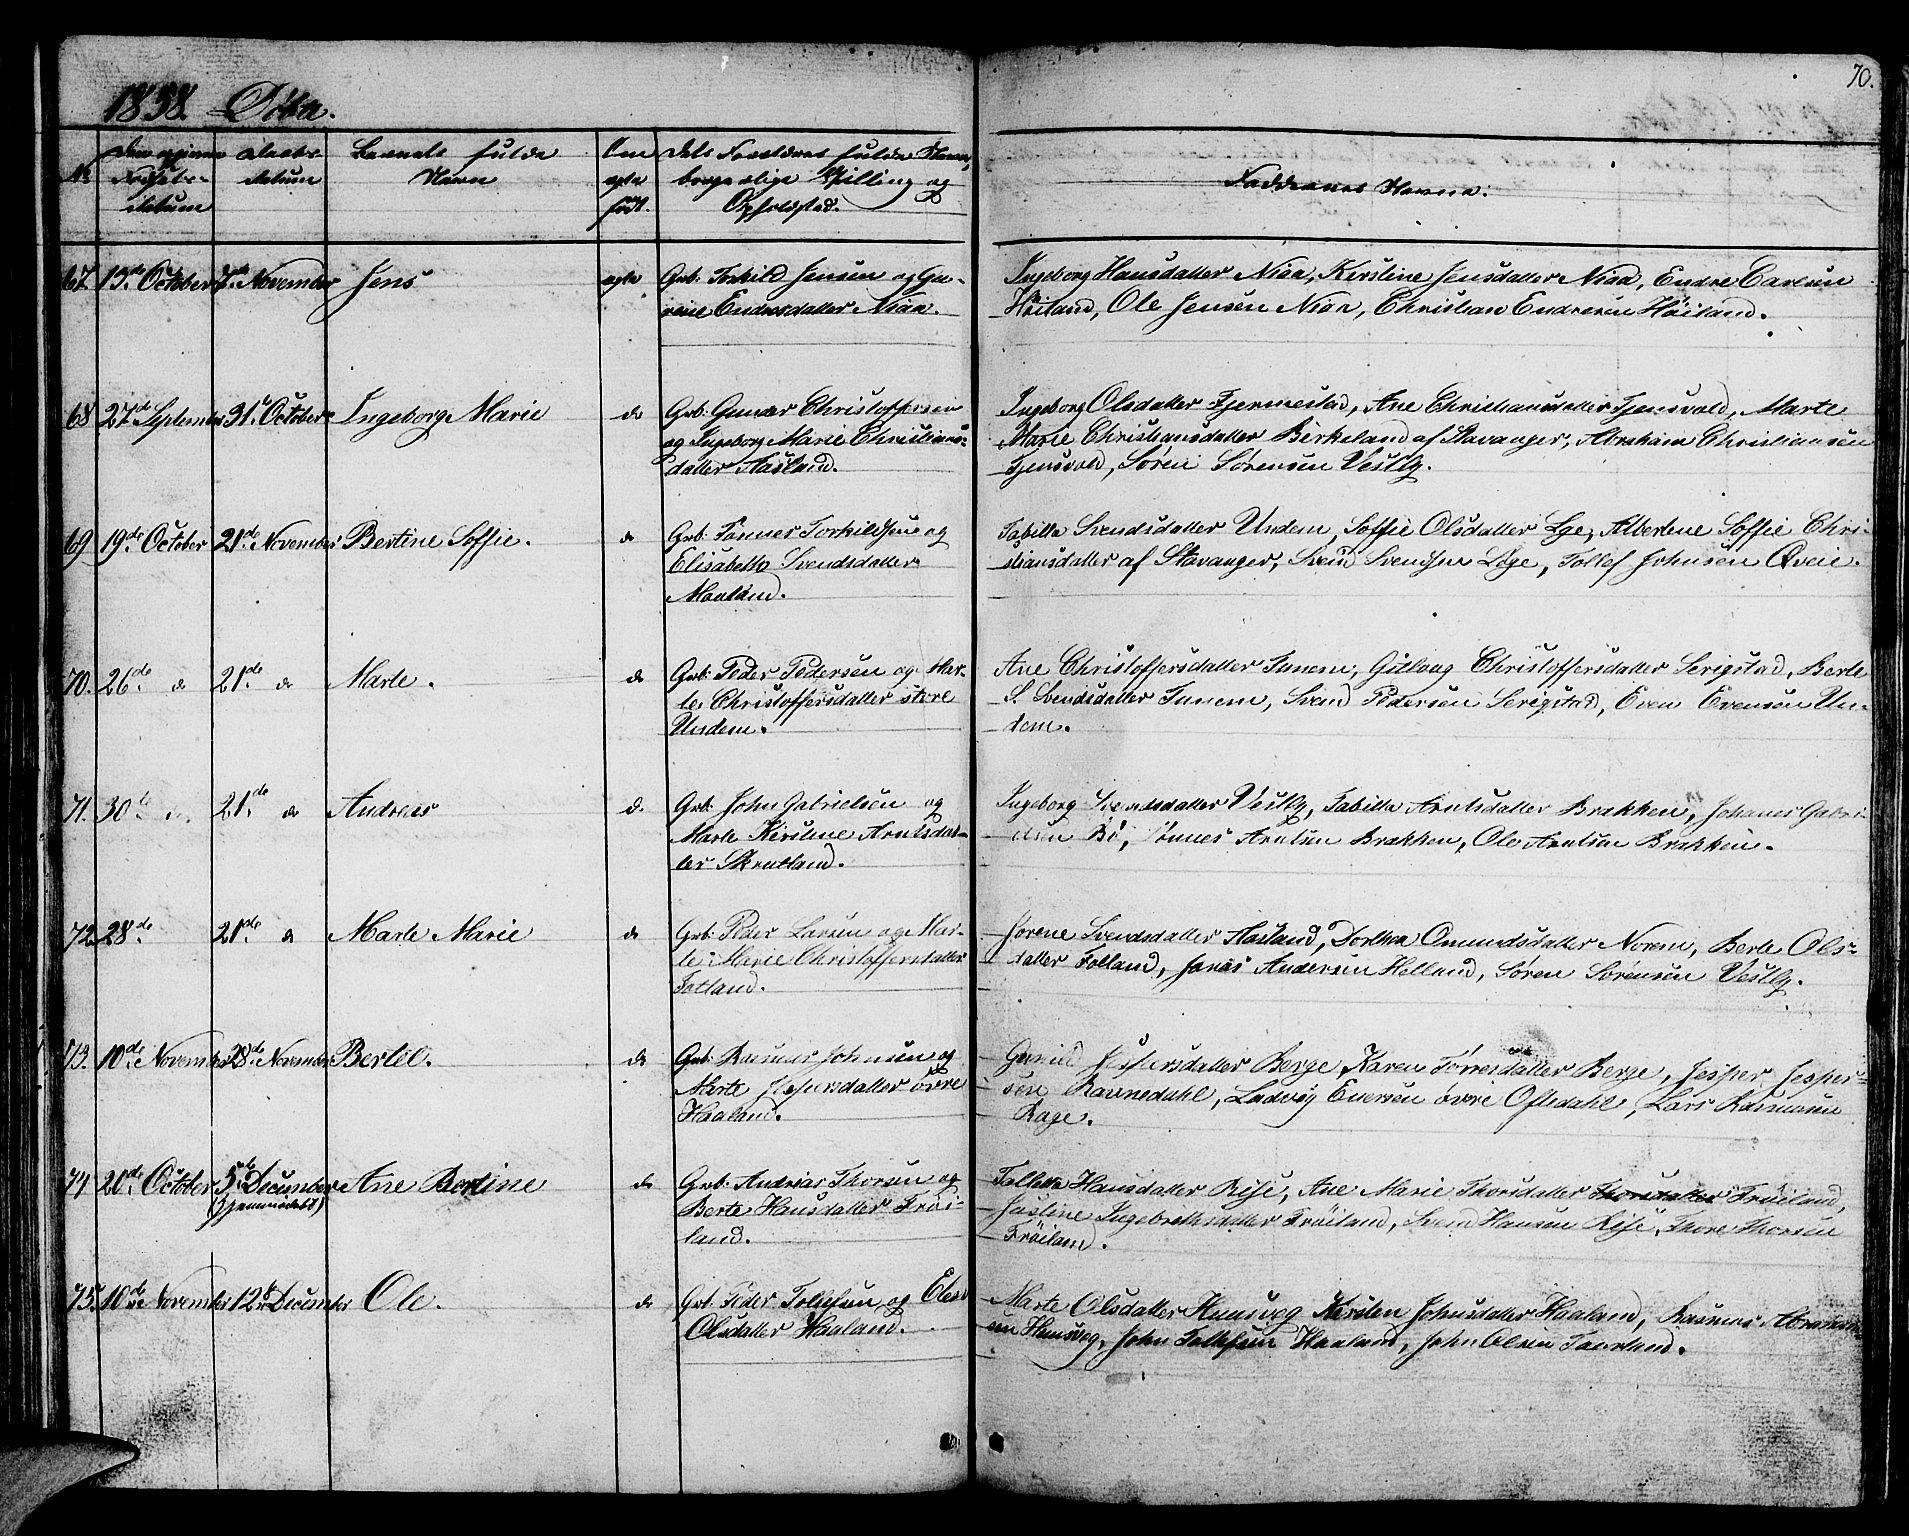 70.
1858. Döbte.
No
Den opgivne Fødsels-datum
Daabs-datum
Barnets fulde Navn
Om ægte født.
Dets Forældres fulde Navne, borgerlige Stilling og Opholdsted.
Faddernes Navne.
67. 15de October 7de November Jens ægte Grb. Torkild Jensen og Gu-
rine Endresdatter Niaa.
Ingeborg Hansdatter Niaa, Kirstine Jensdatter Niaa, Endre Carlsen
Høiland, Ole Jensen Niaa, Christian Endresen Høiland.
68 27de September 31te October Ingeborg Marie do Grb. Gunder Christoffersen
og Ingeborg Marie Christians-
datter Aasland.
Ingeborg Olsdatter Tjermestad, Ane Christiansdatter Tjensvold, Marte
Marie Christiansdatter Birkeland af Stavanger, Abraham Christiansen
Tjensvold, Søren Sørensen Vestly.
69 19de October 21de November Bertine Soffie. do Grb. Tønnes Torkildsen og
Elisabeth Svendsdatter
Maaland.
Tabitta Svendsdatter Undem, Soffie Olsdatter Lge, Albertine Soffie Chri-
stiansdatter af Stavanger, Svend Svendsen Lyge, Tollef Johnsen Qveie.
70. 26de do 21de do Marte. do Grb. Peder Pedersen og Mar-
te Christoffersdatter store
Undem.
Ane Christoffersdatter Tunem, Gitlaug Christoffersdatter Serigstad, Berte
S. Svendsdatter Tunem, Svend Pedersen Serigstad, Even Evensen Un-
dem.
71. 30te do 21de do Andreas d. Grb. John Gabrielsen og
Marte Kirstine Arntsdat-
ter Skrutland.
Ingeborg Svendsdatter Vestly, Tabitta Arntsdatter Brakken, Johanes Gabri-
elsen Bø, Tønnes Arntsen Brakken, Ole Arntsen Brakken.
72. 28de 21de do Marte Marie do Grb. Peder Larsen og Mar-
te Marie Christoffersdatter
Fotland.
Sørene Svendsdatter Aasland, Dorthea Omundsdatter Norem, Berte Ols-
datter Folland, Jonas Andersen Helland, Søren Sørensen Vestly.
73. 10de November 28de November Bertel. do Grb. Rasmus Johnsen og
Marte Jespersdatter øvre
Haaland.
Gunild Jespersdatter Berge, Karen Tørresdatter Berge, Jesper Jesper-
sen Ravnedahl, Ludvig Enersen øvre Oftedahl, Lars Rasmusen
Rage.
74 20de October 5te December (hjemmedøbt) Ane Bertine do Grb. Andreas Thorsen og
Berte Hansdatter Frøi-
land.
Tolletta Hansdatter Risje, Ane Marie Thorsdatter Thorsdatter Frøiland,
Justine Ingebrethsdatter Frøiland, Svend Hansen Risje, Thore Thorsen
Frøiland.
75. 10de November 12te December Ole. do Grb. Peder Tollefsen og Elen
Olsdatter Haaland.
Marte Olsdatter Hunsvog, Kirsten Johnsdatter Haaland, Rasmus Abraham-
sen Hunsvog, John Tollefsen Haaland, John Olsen Taarland.